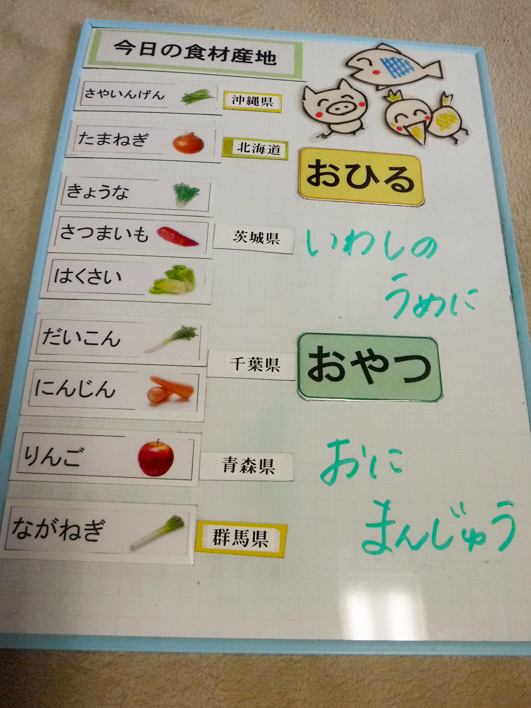 今日の食材産地
さやいんげん 沖縄県
たまねぎ 北海道
きょうな
さつまいも 茨城県
はくさい
だいこん
千葉県
にんじん
りんご 青森県
ながねぎ 群馬県
おひる
いわしの
うめに
おやつ
おに
まんじゅう